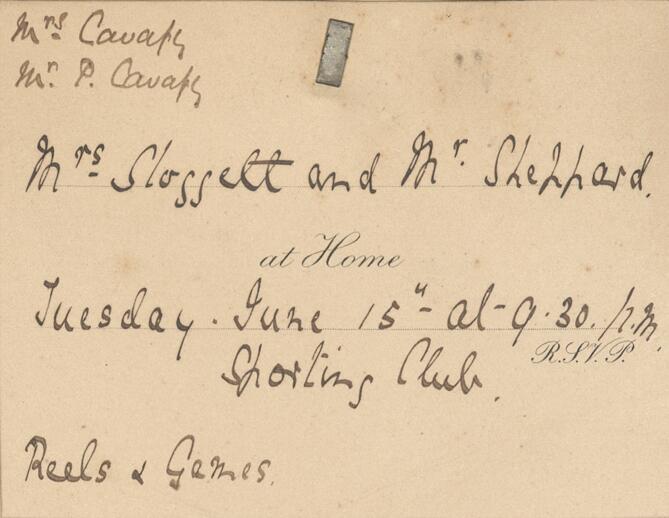 Mrs Cavafy
Mr. P. Cavafy
Mrs Sloggett and Mr. Sheppard.
at Home
Tuesday. June 15th at 9.30. p.m.
R.S.V.P.
Sporting Club.
Reels & Games.